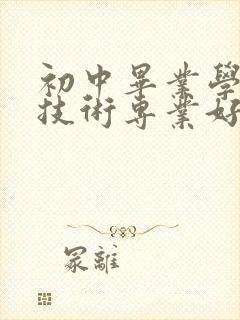 初中畢業學
技術專業好
冢離